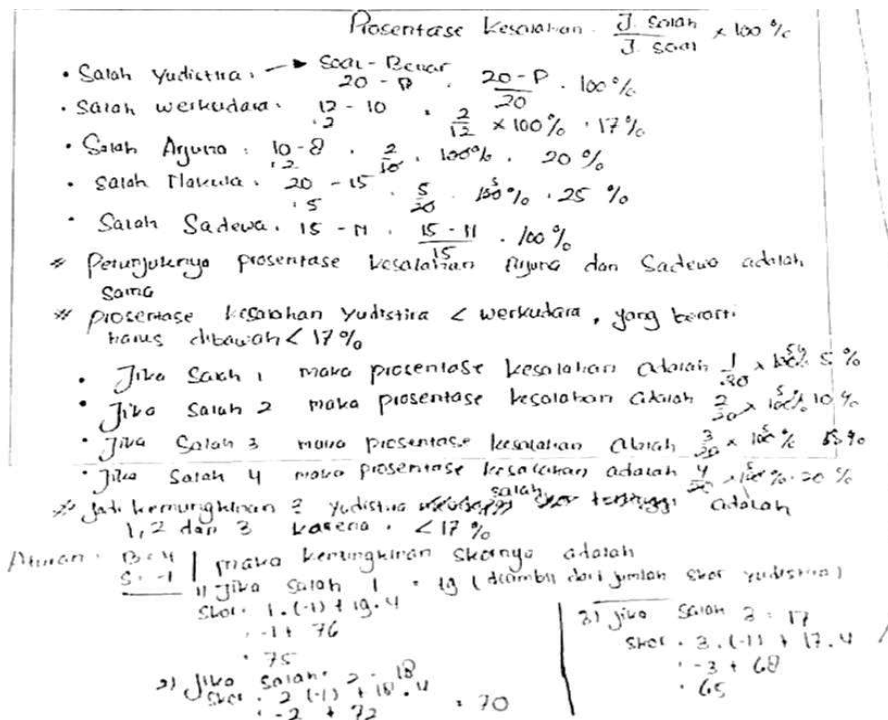 Prosentase kesalahan = J. Salah / J. Soal × 100 %
• Salah Yudistira = → Soal - Benar
20 - P = 20 - P / 20 · 100 %
• Salah Werkudara = 12 - 10 = 2/12 × 100 % = 17 %
= 2
• Salah Arjuna = 10 - 8 = 2/10 · 100 % = 20 %
= 2
• Salah Nakula = 20 - 15 = 5/20 · 100 5 % = 25 %
= 5
• Salah Sadewa = 15 - N = 15 - N / 15 · 100 %
* Petunjuknya prosentase kesalahan Arjuna dan Sadewa adalah
sama
* prosentase kesalahan Yudistira < werkudara, yang berarti
harus dibawah < 17 %
• Jika Salah 1 maka prosentase kesalahan adalah 1/20 × 100 5 % 5 %
• Jika Salah 2 maka prosentase kesalahan adalah 2/20 × 100 5 % 10 %
• Jika Salah 3 maka prosentase kesalahan adalah 3/20 × 100 5 % 15 %
• Jika Salah 4 maka prosentase kesalahan adalah 4/20 × 100 5 % = 20 %
* Jadi kemungkinan Yudistira salah adalah
1, 2 dan 3 karena = < 17 %
Aturan = B = 4
S = -1
maka kemungkinan skornya adalah
1) Jika Salah 1 = 19 (diambil dari jumlah skor yudistira)
Skor = 1 · (-1) + 19 · 4
= -1 + 76
= 75
2) Jika Salah = 2 = 18
Skor = 2 (-1) + 18 · 4
= -2 + 72 = 70
3) Jika Salah 3 = 17
Skor = 3 · (-1) + 17 · 4
= -3 + 68
= 65